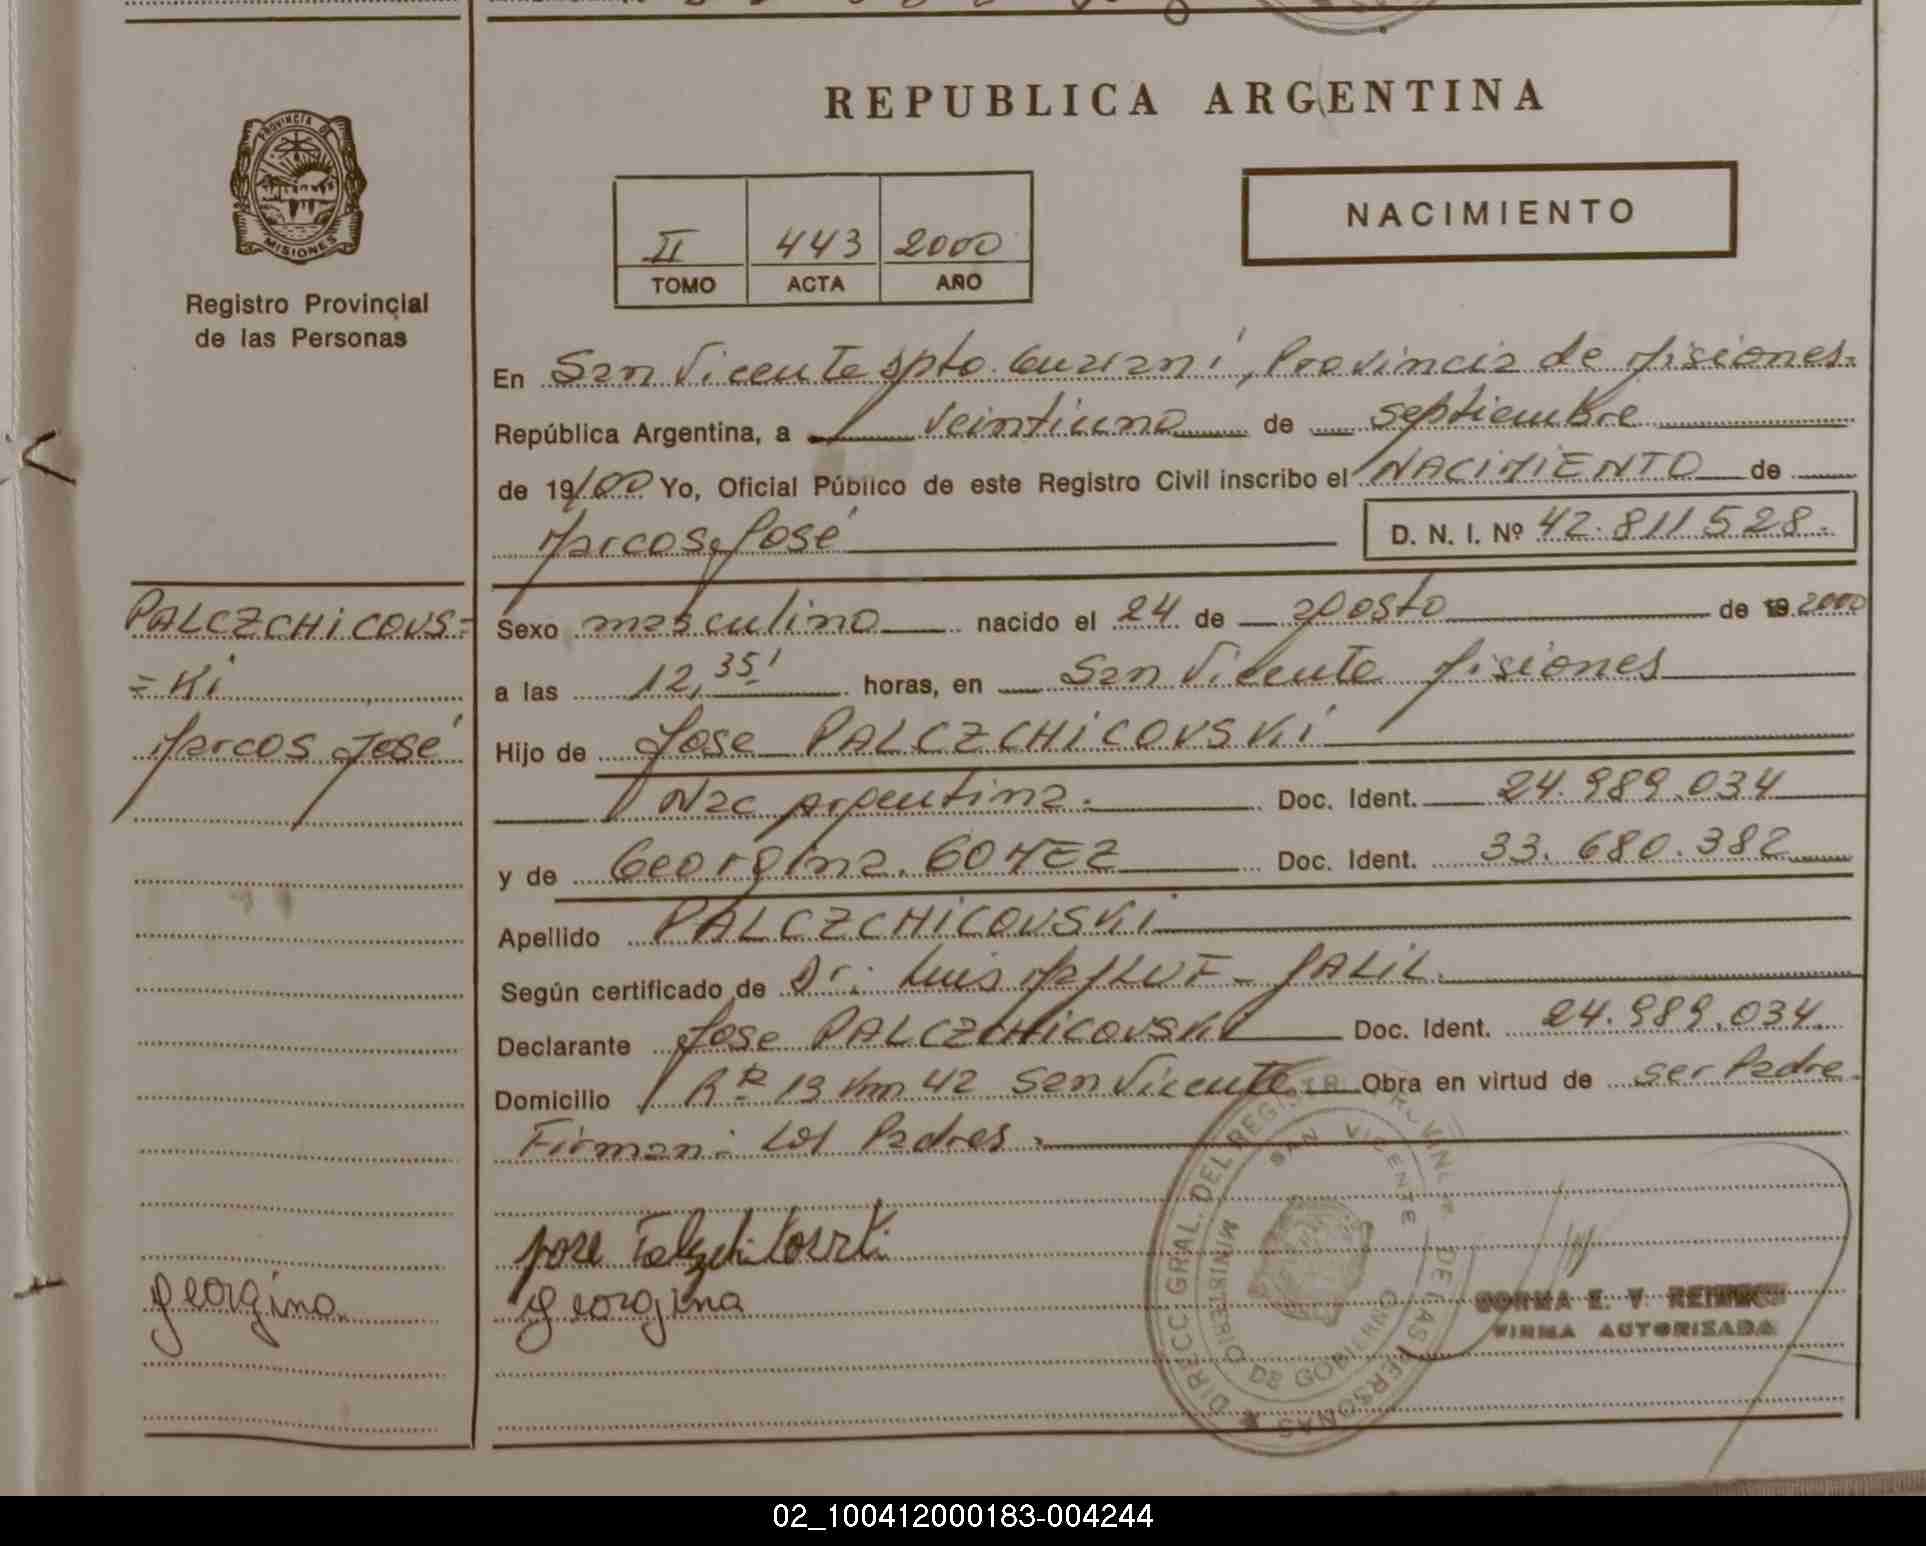 REPUBLICA ARGENTINA
PROVINCIA DE
MISIONES
Registro Provincial
de las Personas
II 443 2000
TOMO ACTA AÑO
NACIMIENTO
En San Vicente Dpto. Guaraní, Provincia de Misiones.
República Argentina, a veintiuno de septiembre
de 19/00 Yo, Oficial Público de este Registro Civil inscribo el NACIMIENTO de
Marcos José
D. N. I. Nº 42.811.528.-
PALCZCHICOVS=
=Ki
Marcos José
Sexo masculino nacido el 24 de agosto de 19 2000
a las 12,35' horas, en San Vicente Misiones
Hijo de Jose PALCZCHICOVSKi
Nac argentina.- Doc. Ident. 24.989.034
y de Georgina. GOMEZ Doc. Ident. 33.680.382
Apellido PALCZCHICOVSKi
Según certificado de Dr. Luis JALIL.
Declarante Jose PALCZCHICOVSKi Doc. Ident. 24.989.034.
Domicilio km 42 San Vicente Obra en virtud de ser Padre.
Firman: Los Padres.
jose
georgina
georgina
DIRECC. GRAL. DEL REGISTRO PROVINC. DE LAS PERSONAS
SAN VICENTE
MINISTERIO DE GOBIERNO
NORMA E. V.
FIRMA AUTORIZADA
02_100412000183-004244